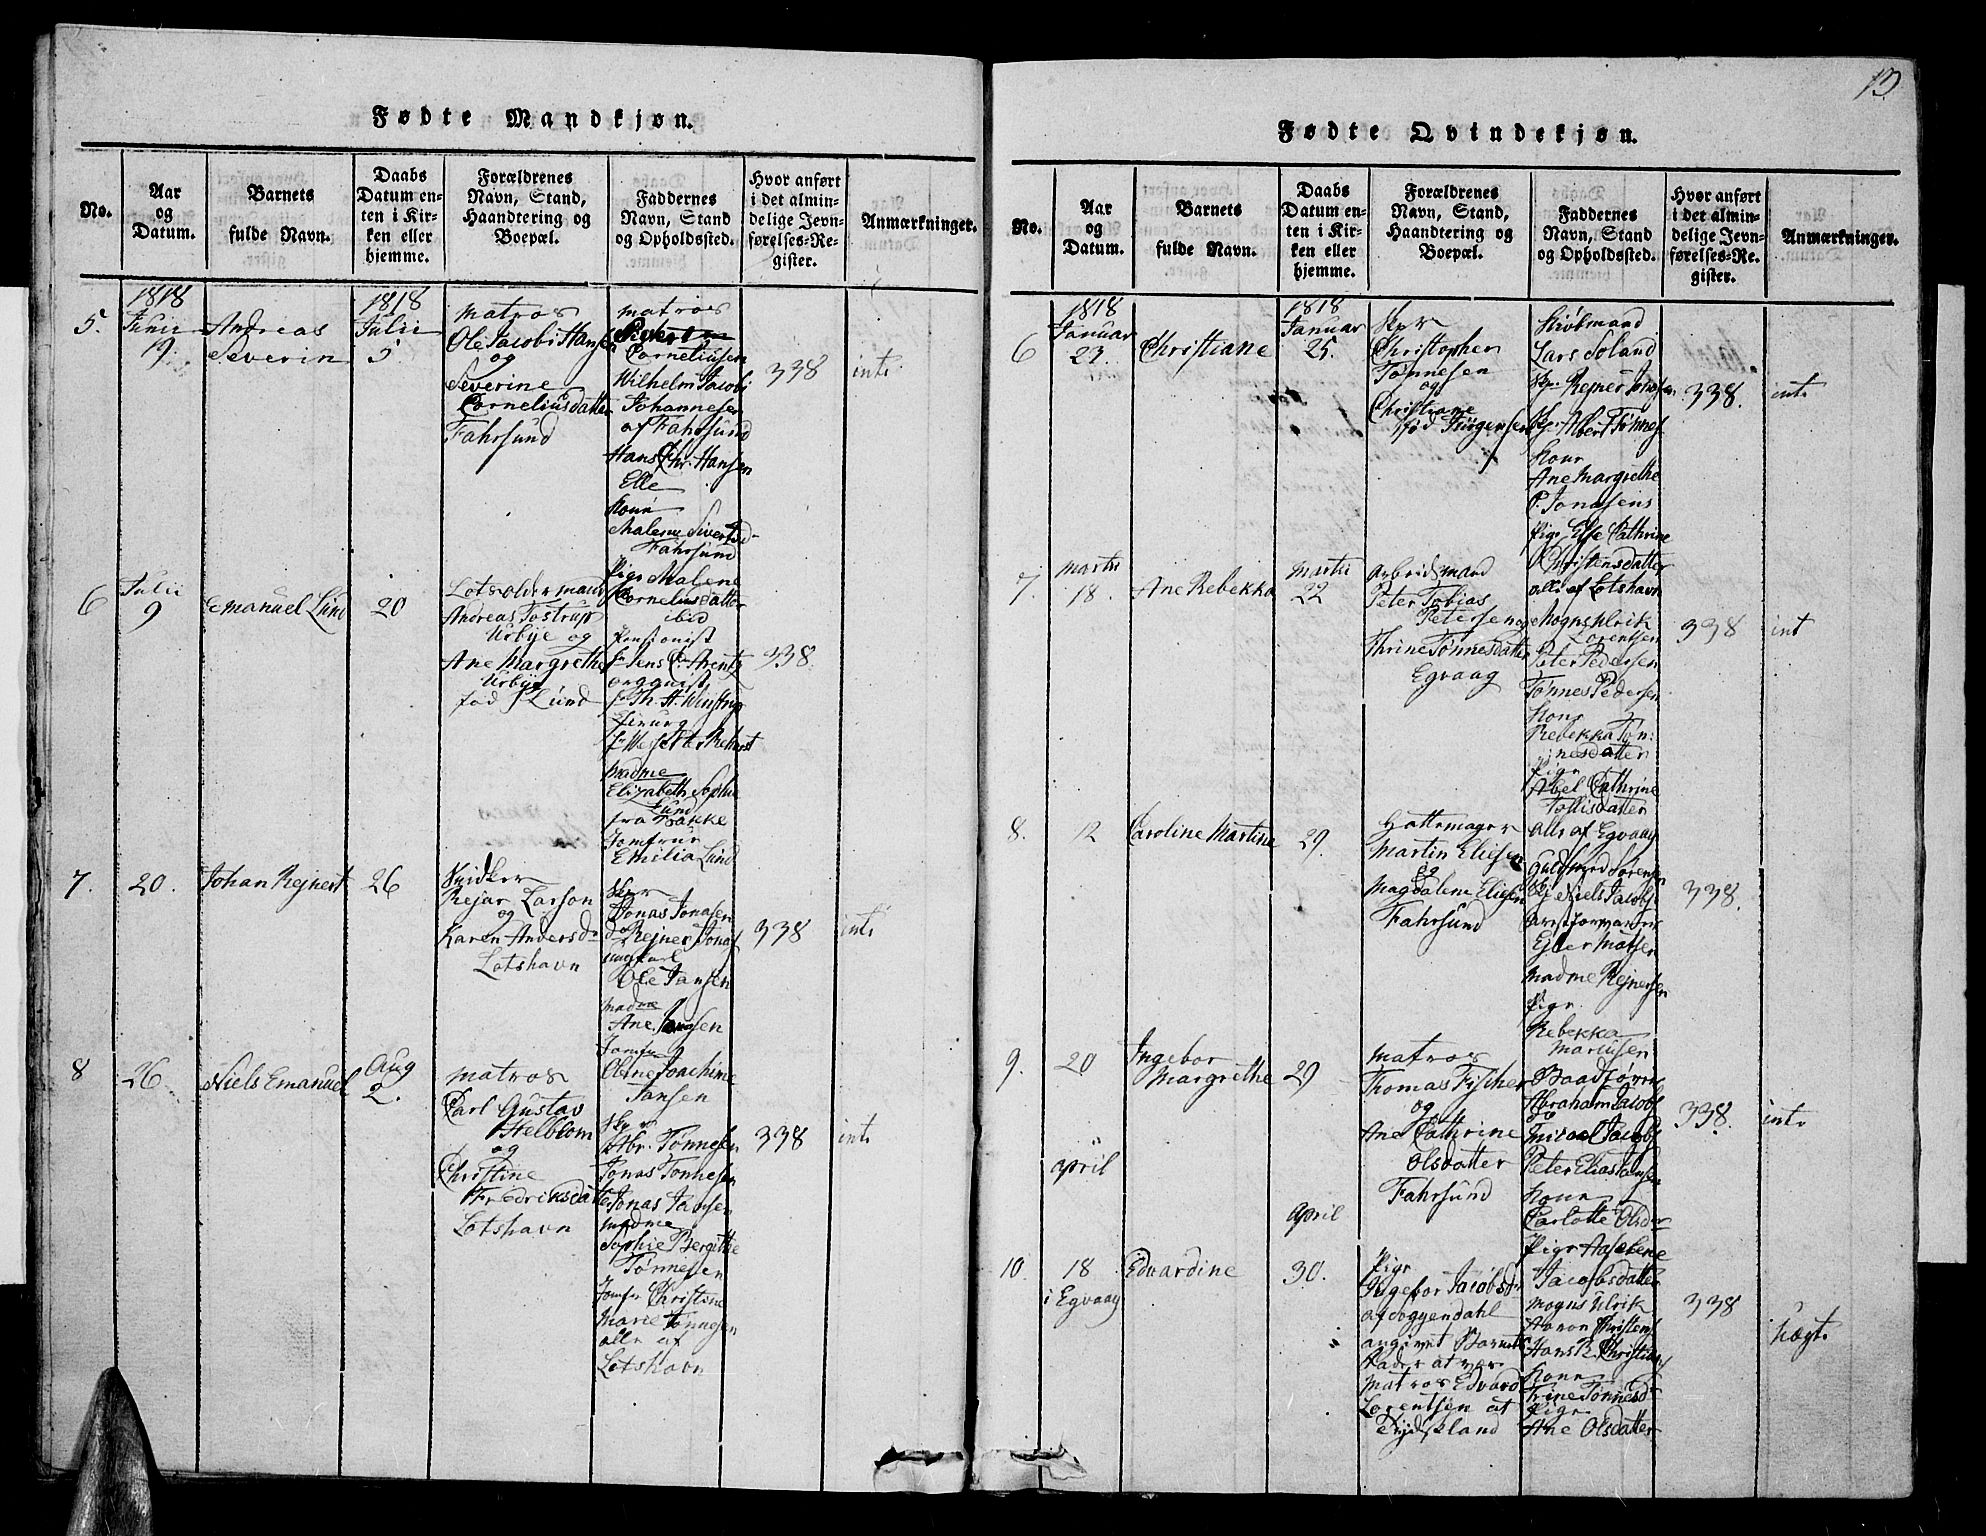 13
Fødte Mandkjøn.
No.
Aar
og
Datum.
Barnets
fulde Navn.
Daabs
Datum en-
ten i Kir-
ken eller
hjemme.
Forældrenes
Navn, Stand,
Haandtering og
Boepæl.
Faddernes
Navn, Stand
og Opholdssted.
Hvor anført
i det almin-
delige Jevn-
førelses-Re-
gister.
Anmærkninger.
5.
1818
Junii
19.
Andreas
Severin
1818
Julii
5
matros
Ole Jacobi Hansen
og
Severine
Corneliusdatter
Fahrsund
matros
Corneliusen
Wilhelm Jacobi
Johannesen
af Fahrsund
Hans Chr. Hansen
Elle
Kone
Malene Sivertsd
Fahrsund
Pige Malene
Corneliusdatter
ibid
338
int.
6
Julii
9
Emanuel Lund
20
Lotsoldermand
Andreas Tostrup
Urbye og
Ane Margrethe
Urbye
fød Lund
Pensionist
Hr Jens C. Arentz
organist
Hr Th. H. Winstrup
Chirurg
madme
Elizabeth Sophie
Lund
fra Bakke
Jomfrue
Emilia Lund
338.
7.
20.
Johan Rejnert
26
Snidker
Rejar Larson
og
Karen Andersd.
Lotshavn
Skpr
Jonas Jonasen
do Rejner Jonas
ungkarl
Ole Jansen
madme
Ane Jansen
Jomfr
Oline Joachime
Jansen
338
int.
8
26.
Niels Emanuel
Aug
2.
matros
Carl Gustav
Helblom
og
Christine
Fredriksdatter
Lotshavn
Skpr
Abr. Tønnesen
Jonas Tønnesen
Jonas Jansen
madme
Sophie Bergithe
Tønnesen
Jomfr Christine
Marie Tønnesen
alle af
Lotshavn
338
int.
Fødte Qvindekjøn.
No.
Aar
og
Datum.
Barnets
fulde Navn.
Daabs
Datum en-
ten i Kir-
ken eller
hjemme.
Forældrenes
Navn, Stand,
Haandtering og
Boepæl.
Faddernes
Navn, Stand
og Opholdssted.
Hvor anført
i det almin-
delige Jevn-
førelses-Re-
gister.
Anmærkninger.
6
1818
Januar
23.
Christiane
1818
Januar
25.
Skpr
Christopher
Tønnesen
og
Christiane
fød Jürgensen
Kiøbmand
Lars Soland
Skpr Rejner Jonasen
Skpr Albert Tønnes.
Kone
Ane Margrethe
P. Jonasens
Pige Else Cathrine
Christensdatter
alle af Lotshavn
338.
int.
7.
Martii
18.
Ane Rebekka
Martii
22
Arbeidsmand
Peter Tobias
Petersen og
Thrine Tønnesdatter
Egvaag
Mogns Ulrik
Lorentsen
Peter Pedersen
Tønnes Pedersen
Kone
Rebekka Tøn-
nesdatter
Pige
Abel Cathrine
Tollisdatter
alle af Egvaag
338
int
8.
12
Caroline Martine
29.
Hattemager
Martin Eliesen
og
Magdalene Eliesen
Fahrsund
Guldsmed Sørensen
Niels Jacobs.
Arrestforvarer
Ejler Matsen
Madme Rejnersen
Pige
Rebekka
Mariusen
338.
9.
20
Ingebor
Margrethe
29
matros
Thomas Fischer
og
Ane Cathrine
Olsdatter
Fahrsund
Baadsførere
Abraham Jacobs.
Mikael Jacobs.
Peter Elias Hansen
Kone
Carlotte Olsdr
Pige Aaselene
Jacobsdatter
338.
int.
10.
april
18
i Egvaag
Edvardine
April
30.
Pige
Ingebor Jacobsdr
af Loggendahl
angivet Barnets
Fader at vær
matros Edvard
Lorentsen at
Tydskland
Mogns Ulrik
Aaron Christens.
Hans R. Christians
Kone
Trine Tønnesdr
Pige
Ane Olsdatter
338
Uægt.